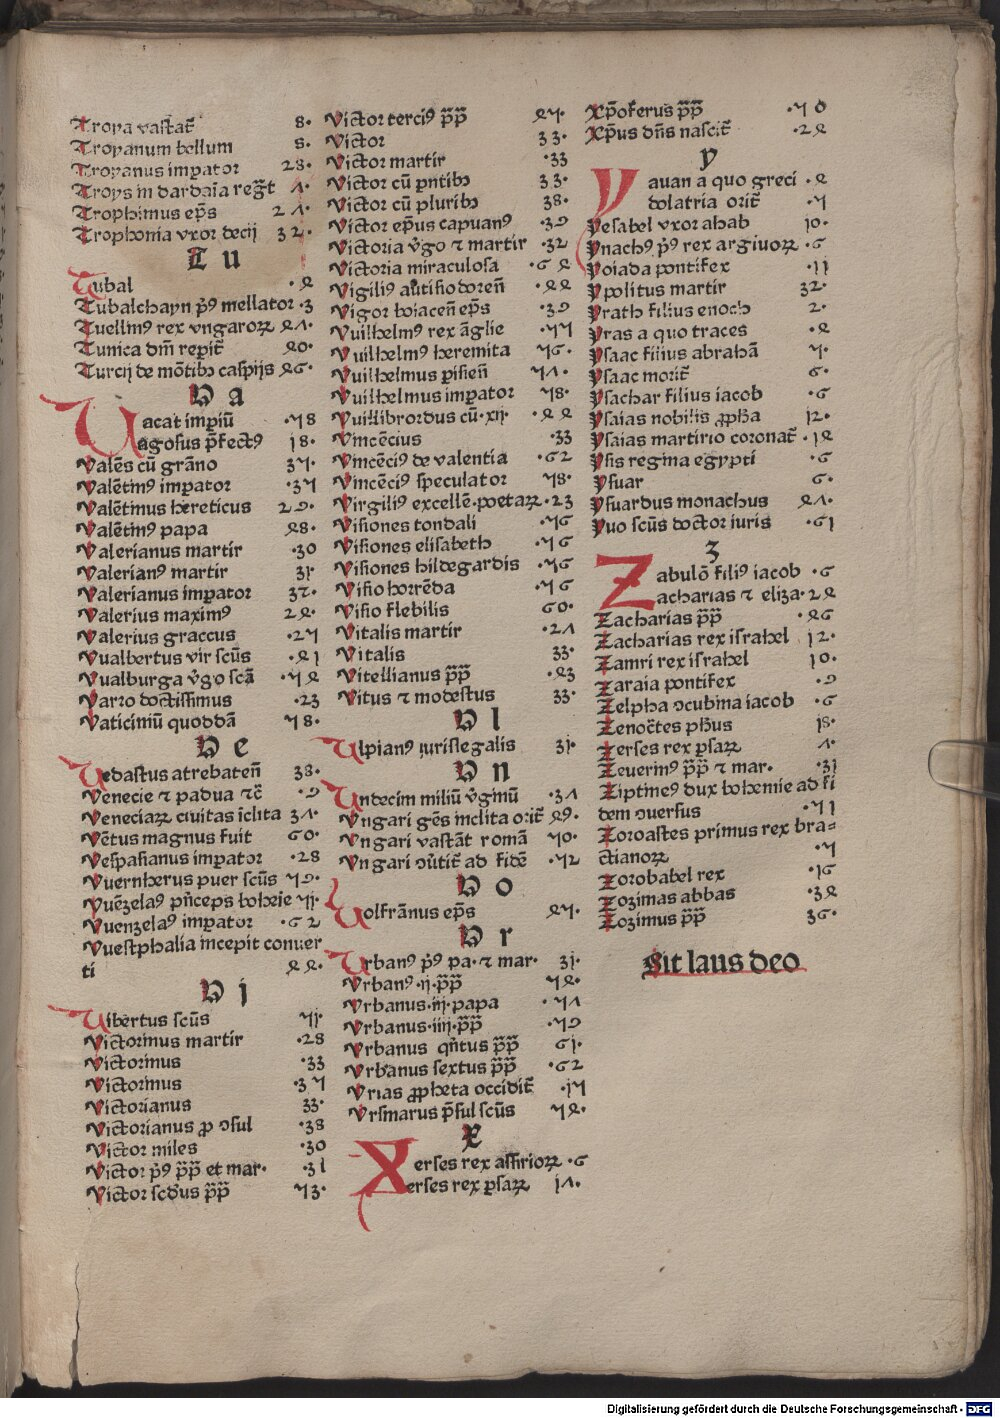 Troya vastat̄ 8.
Troyanum bellum 8.
Troyanus imꝑator 28.
Troys in dardaīa reḡt 1.
Trophimus ep̄s 21.
Trophonia vxor decij 32.
Tu
Tubal .2
Tubalchayn pꝰ̄ mellator .3
Tuellinꝰ rex vngaroꝝ 41.
Tunica dn̄i reꝑit̄ 40.
Turcij de mōtibꝫ caspijs 46.
Va
Uacat imꝑiū .78
Uagosus p̄fectꝰ 18.
Valēs cū gr̄ano 37.
Valētinꝰ imꝑator .37
Valētinus hereticus 29.
Valētinꝰ papa 48.
Valerianus martir .30
Valerianꝰ martir 31.
Valerianus imꝑator 32.
Valerius maximꝰ 24.
Valerius graccus .27
Vualbertus vir scūs .41
Vualburga v̄go scā .74
Varro doctissimus .23
Vaticiniū quoddā 78.
Ve
Uedastus atrebaten̄ 38.
Venecie ⁊ padua ⁊c̄ .9
Veneciaꝝ ciuitas īclita 31.
Vētus magnus fuit 60.
Vespasianus imꝑator .28
Vuernherus puer scūs 79.
Vuēzelaꝰ pn̄ceps boheīe 71.
Vuenzelaꝰ imꝑator .62
Vuestphalia incepit conuer
ti 44.
Vi
Uibertus scūs 71.
Victorinus martir .28
Victorinus .33
Victorinus .37
Victorianus 33.
Victorianus ꝓ ꝯsul .38
Victor miles .30
Victor pꝰ̄ pp̄ et mar. .31
Victor scd̄us pp̄ 73.
Victor terciꝰ pp̄ 47.
Victor 33.
Victor martir .33
Victor cū pn̄tibꝫ 33.
Victor cū pluribꝫ 38.
Victor ep̄us capuanꝰ .39
Victoria v̄go ⁊ martir .32
Victoria miraculosa .64
Vigiliꝰ aūtisiodoren̄ .44
Vigor boiacen̄ ep̄s .39
Vuilhelmꝰ rex āglie .77
Vuilhelmꝰ heremita 76.
Vuilhelmus ꝑisien̄ 71.
Vuilhelmus imꝑator 78.
Vuillibrordus cū.xij. .44
Vincēcius .33
Vincēciꝰ de valentia .62
Vincēciꝰ speculator 78.
Virgiliꝰ excellē.poetaꝝ .23
Visiones tondali .76
Visiones elisabeth .76
Visiones hildegardis .76
Visio horrēda .76
Visio flebilis 60.
Vitalis martir .21
Vitalis 33.
Vitellianus pp̄ .43
Vitus ⁊ modestus 33.
Vl
Ulpianꝰ iurislegalis 31.
Vn
Undecim miliū v̄ginū .31
Vngari gēs inclita orit̄ 49.
Vngari vastāt romā 70.
Vngari ꝯūtit̄ ad fidē .72
Vo
Uolfrānus ep̄s 47.
Vr
Urbanꝰ pꝰ̄ pa.⁊ mar. 31.
Vrbanꝰ.ij.pp̄ 74.
Vrbanus.iij.papa .71
Vrbanus.iiij.pp̄ .79
Vrbanus qn̄tus pp̄ 61.
Vrbanus sextus pp̄ .62
Vrias ꝓpheta occidit̄ .17
Vrsmarus p̄sul scūs 74.
X
Xerses rex assirioꝝ .6
Xerses rex ꝑsaꝝ 11.
Xp̄oferus pp̄ .70
Xp̄us dn̄s nascit̄ .24
Y
Yauan a quo greci .4
Ydolatria orit̄ .7
Yesabel vxor ahab 10.
Ynachꝰ pꝰ̄ rex argiuoꝝ .6
Yoiada pontifex .11
Ypolitus martir 32.
Yrath filius enoch 2.
Yras a quo traces .4
Ysaac filius abrahā 7.
Ysaac morit̄ 6.
Ysachar filius iacob .6
Ysaias nobilis ꝓph̄a 12.
Ysaias martirio coronat̄ .14
Ysis regina egypti .6
Ysuar 6.
Ysuardus monachus 41.
Yuo scūs doctor iuris .61
Z
Zabulō filiꝰ iacob .6
Zacharias ⁊ eliza. 24
Zacharias pp̄ .46
Zacharias rex israhel 12.
Zamri rex israhel 10.
Zaraia pontifex .9
Zelpha ꝯcubina iacob .6
Zenoc̄tes ph̄us 18.
Zerses rex ꝑsaꝝ 1.
Zeuerinꝰ pp̄ ⁊ mar. .31
Ziptineꝰ dux bohemie ad fi
dem ꝯuersus .71
Zoroastes primus rex bra⸗
ctianoꝝ .7
Zorobabel rex .16
Zozimas abbas .34
Zozimus pp̄ 36.
Sit laus deo
Digitalisierung gefördert durch die Deutsche Forschungsgemeinschaft - DFG